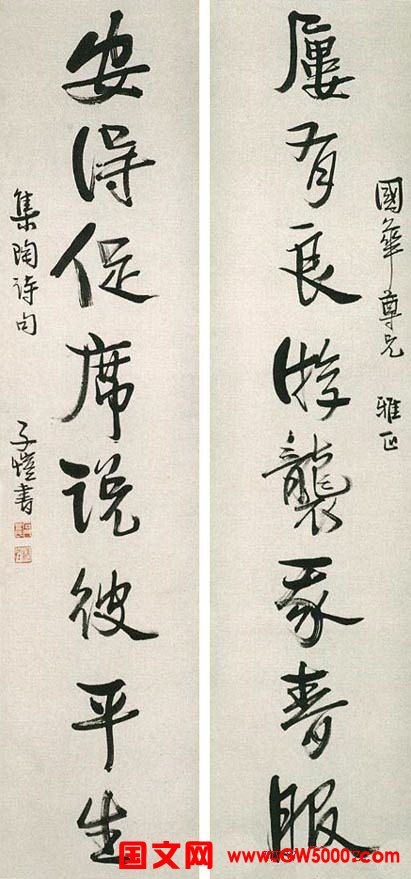 國華尊兄 雅正
屢有良游襲我春服
安得促席説彼平生
集陶詩句 子愷書
国文网 www.GW5000.com